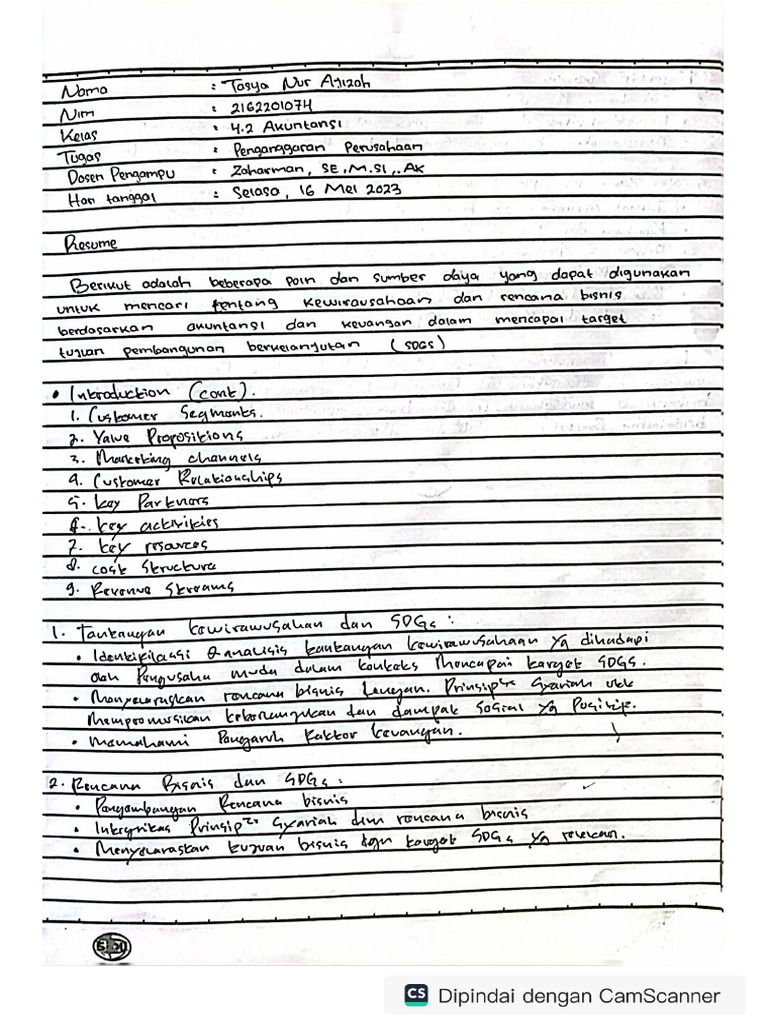 Nama : Tasya Nur Azizah
Nim : 2162201074
Kelas : 4.2 Akuntansi
Tugas : Penganggaran Perusahaan
Dosen Pengampu : Zaharman, SE, M.Si,. Ak
Hari tanggal : Selasa, 16 Mei 2023
Resume
Berikut adalah beberapa poin dan sumber daya yang dapat digunakan
untuk mencari tentang kewirausahaan dan rencana bisnis
berdasarkan akuntansi dan keuangan dalam mencapai target
tujuan pembangunan berkelanjutan (SDGS)
• Introduction (cont).
1. Customer Segments.
2. Value Propositions
3. Marketing channels
4. Customer Relationships
5. key Partners
6. key activities
7. key resources
8. cost structure
9. Revenue Streams
1. Tantangan kewirawusahan dan SDGs :
• Identifikasi & analisis tantangan kewirawusahaan yg dihadapi
oleh Pengusaha muda dalam konteks Mencapai target SDGS.
• Menyelaraskan rencana bisnis dengan. Prinsip² Syariah utk
Mempromosikan keberlanjutan dan dampak sosial yg Positif.
• Memahami Pengaruh faktor keuangan.
2. Rencana Bisnis dan SDGs :
• Pengembangan Rencana bisnis
• Integritas Prinsip² Syariah dlm rencana bisnis
• Menyelaraskan tujuan bisnis dgn target SDGs yg relevan.
CS Dipindai dengan CamScanner